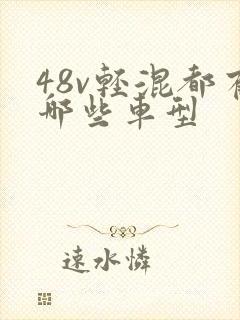 48v輕混都有
哪些車型
遠水憐